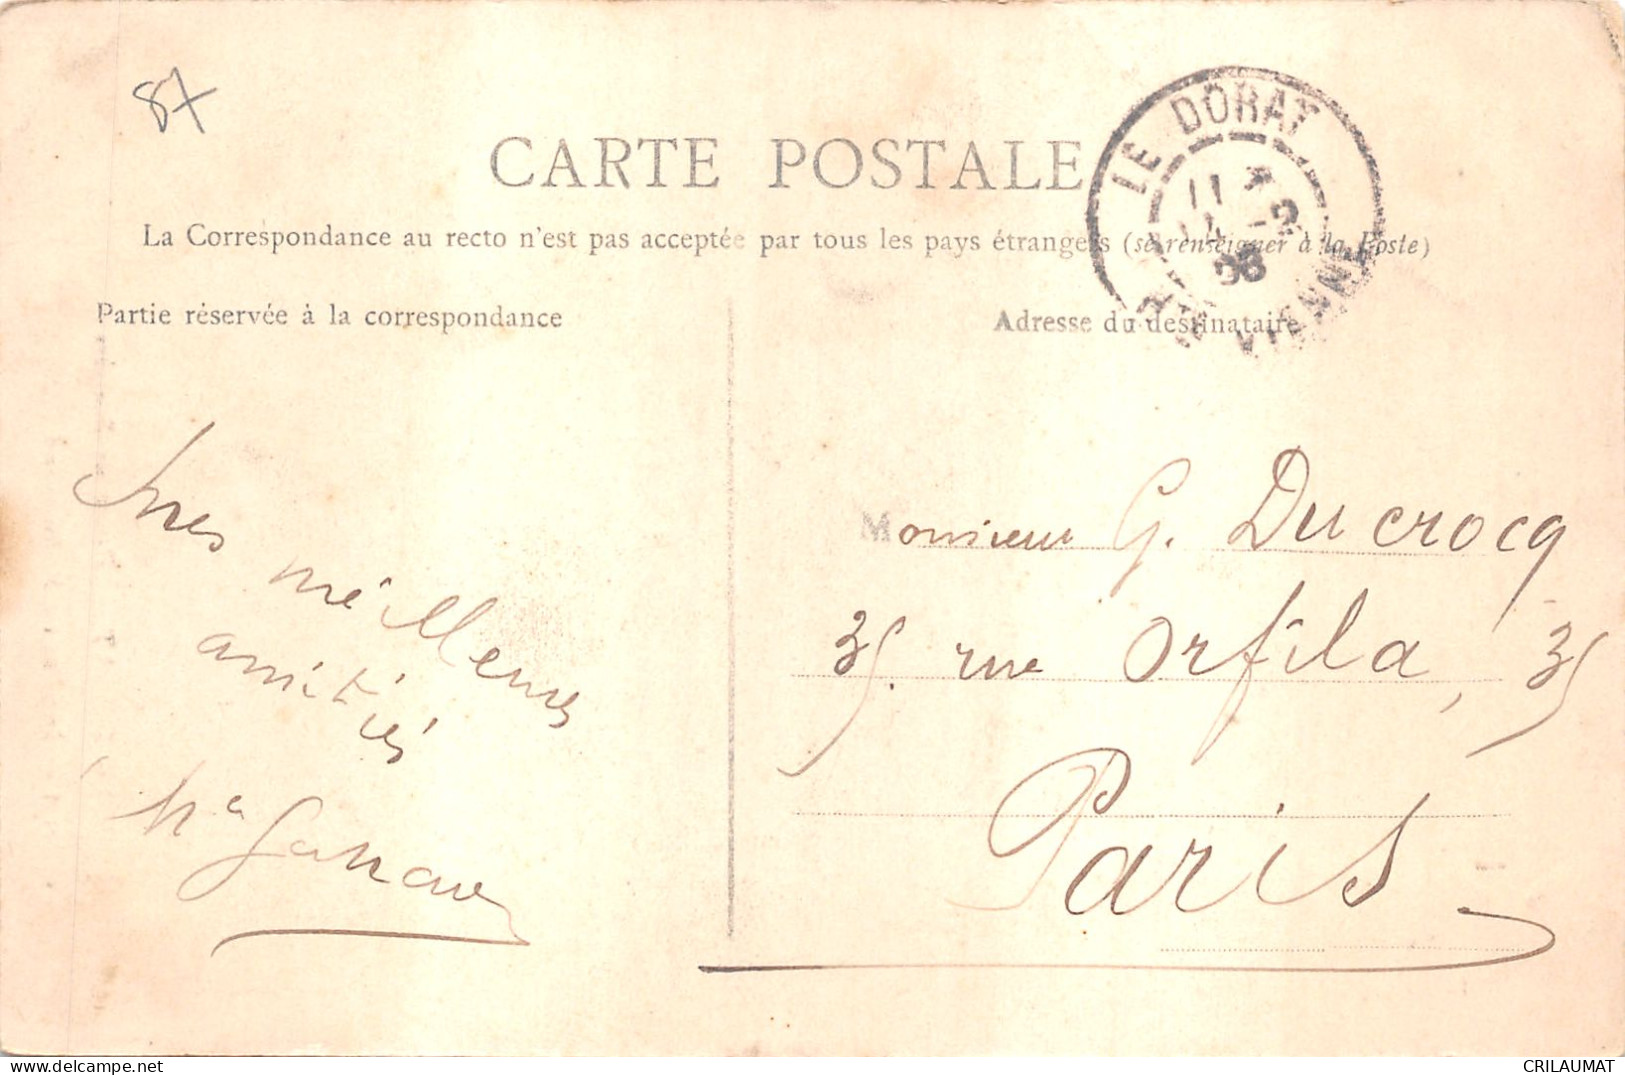 87
CARTE POSTALE
La Correspondance au recto n'est pas acceptée par tous les pays étrangers (se renseigner à la Poste)
Partie réservée à la correspondance
Adresse du destinataire
LE DORAT
11
14 -2
VIENNE
meilleures
amitiés
Monsieur G. Ducrocq
35. rue Orfila, 35
Paris
CRILAUMAT